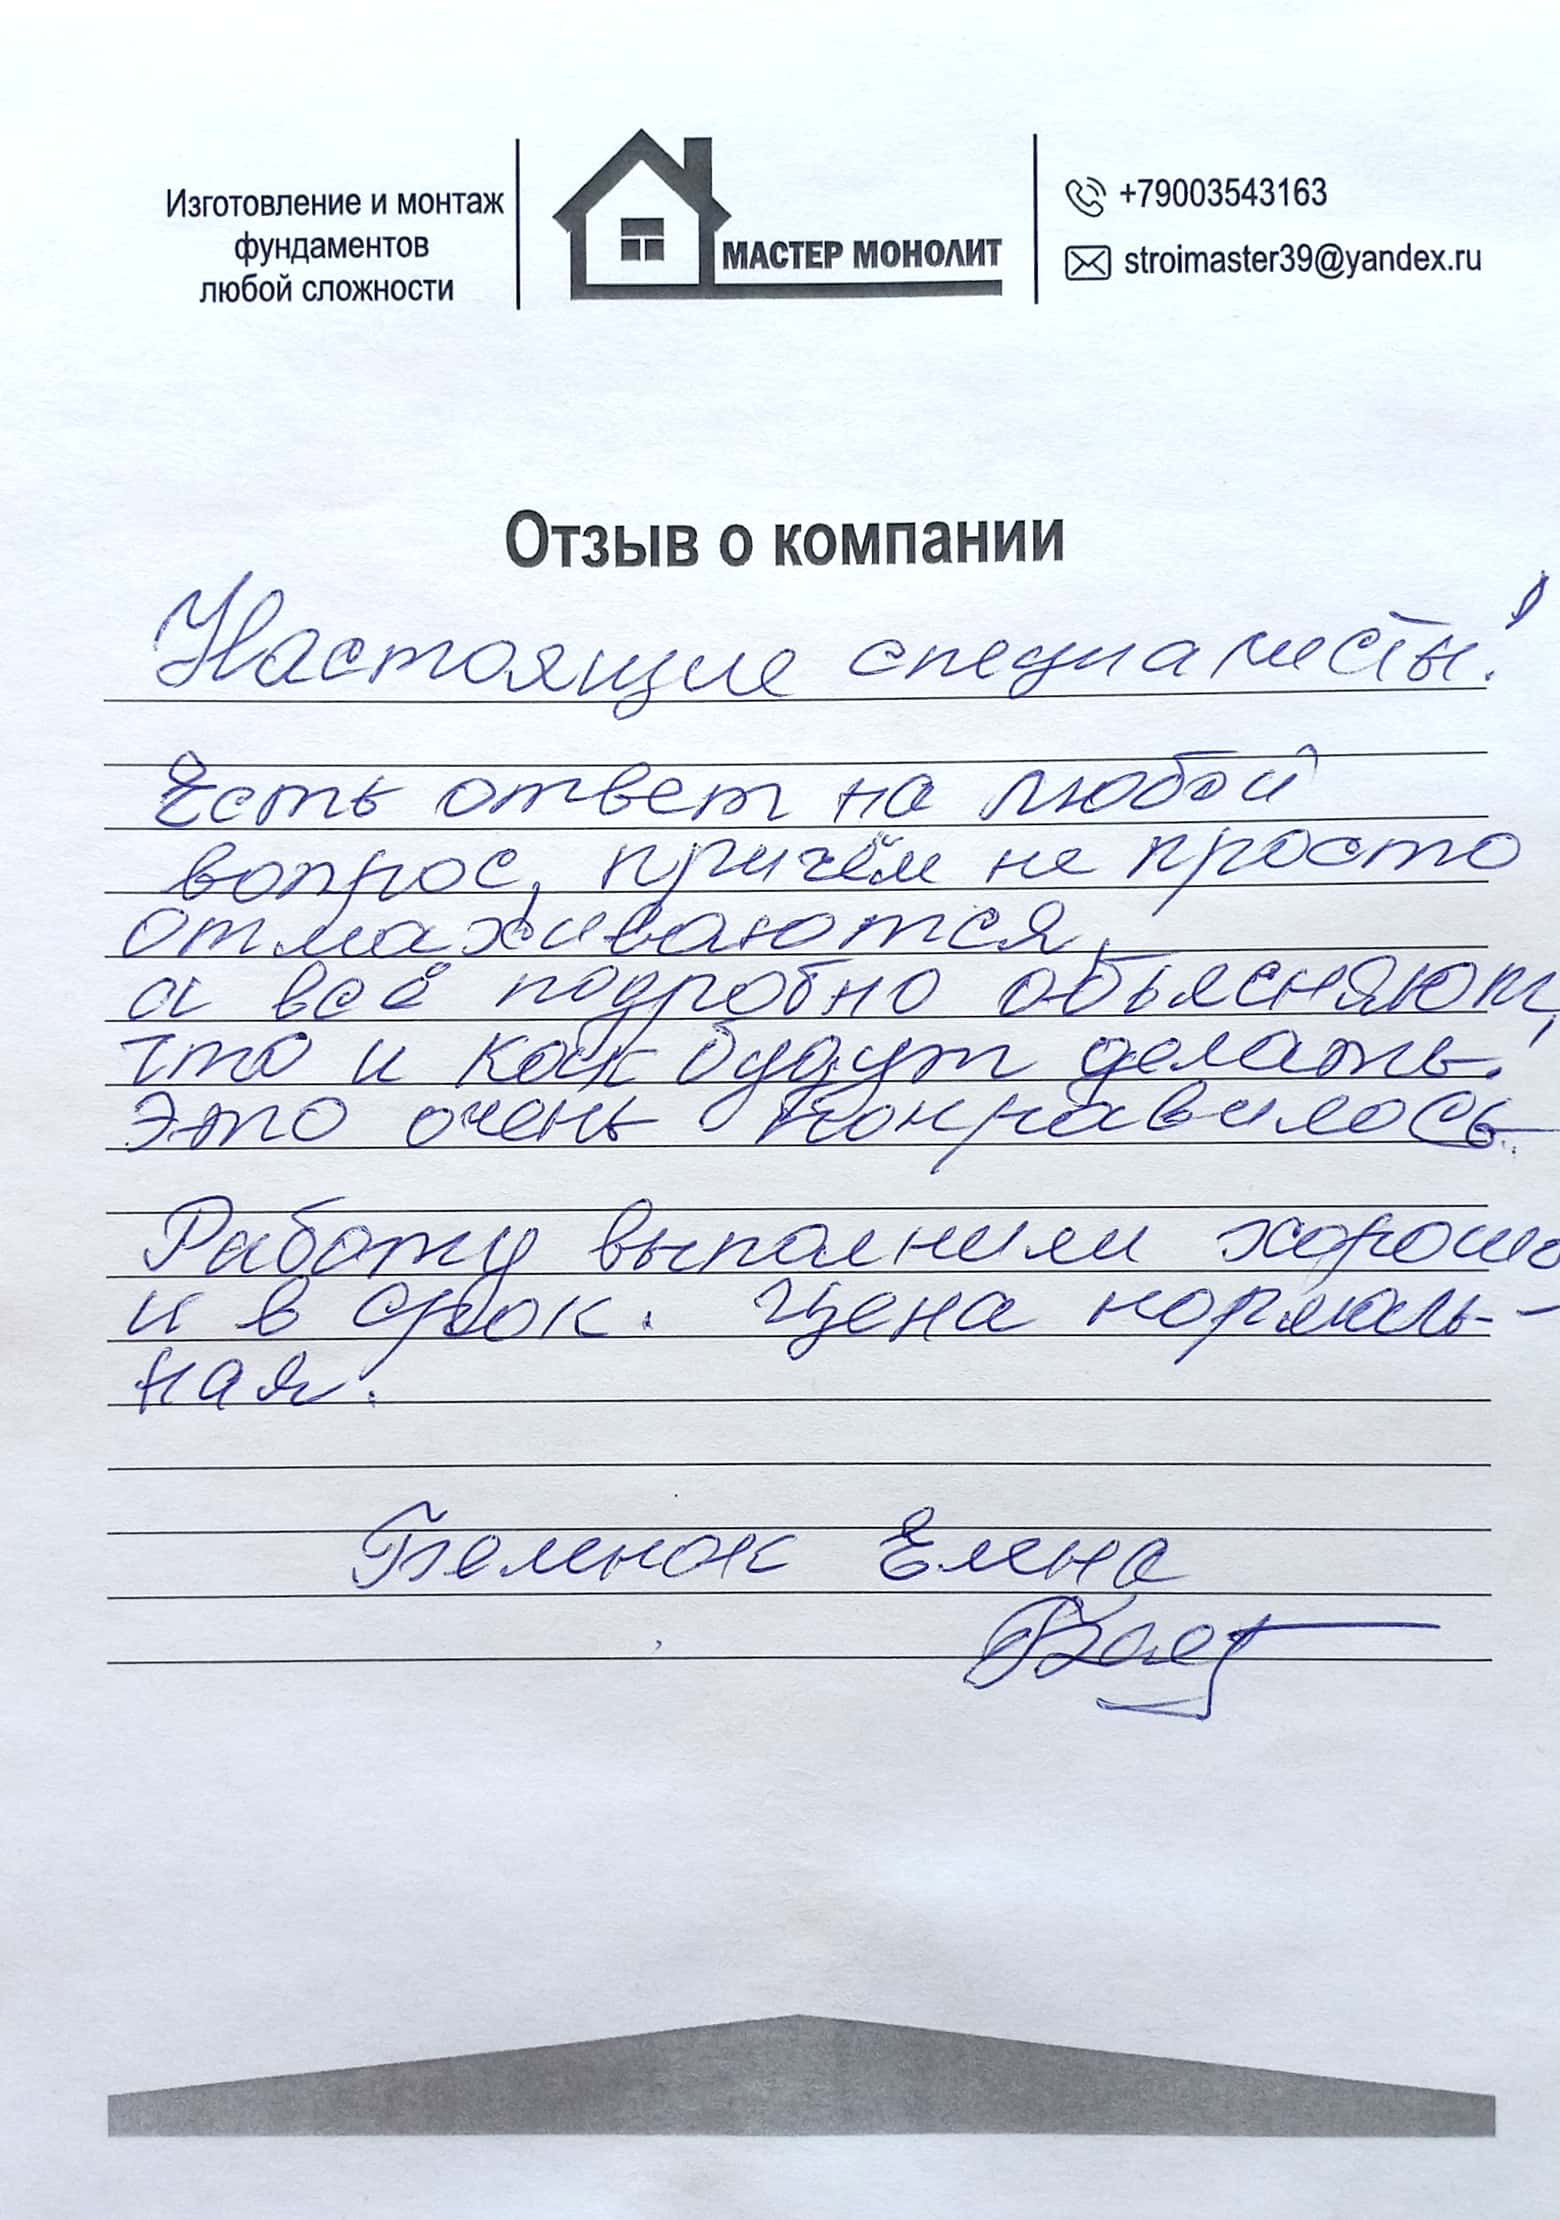 Изготовление и монтаж
фундаментов
любой сложности
МАСТЕР МОНОЛИТ
+79003543163
stroimaster39@yandex.ru
Отзыв о компании
Настоящие специалисты!
Есть ответ на любой
вопрос, причём не просто
отмахиваются,
а всё подробно объясняют,
что и как будут делать!
Это очень понравилось.
Работу выполнили хорошо
и в срок. Цена нормаль-
ная.
Елена